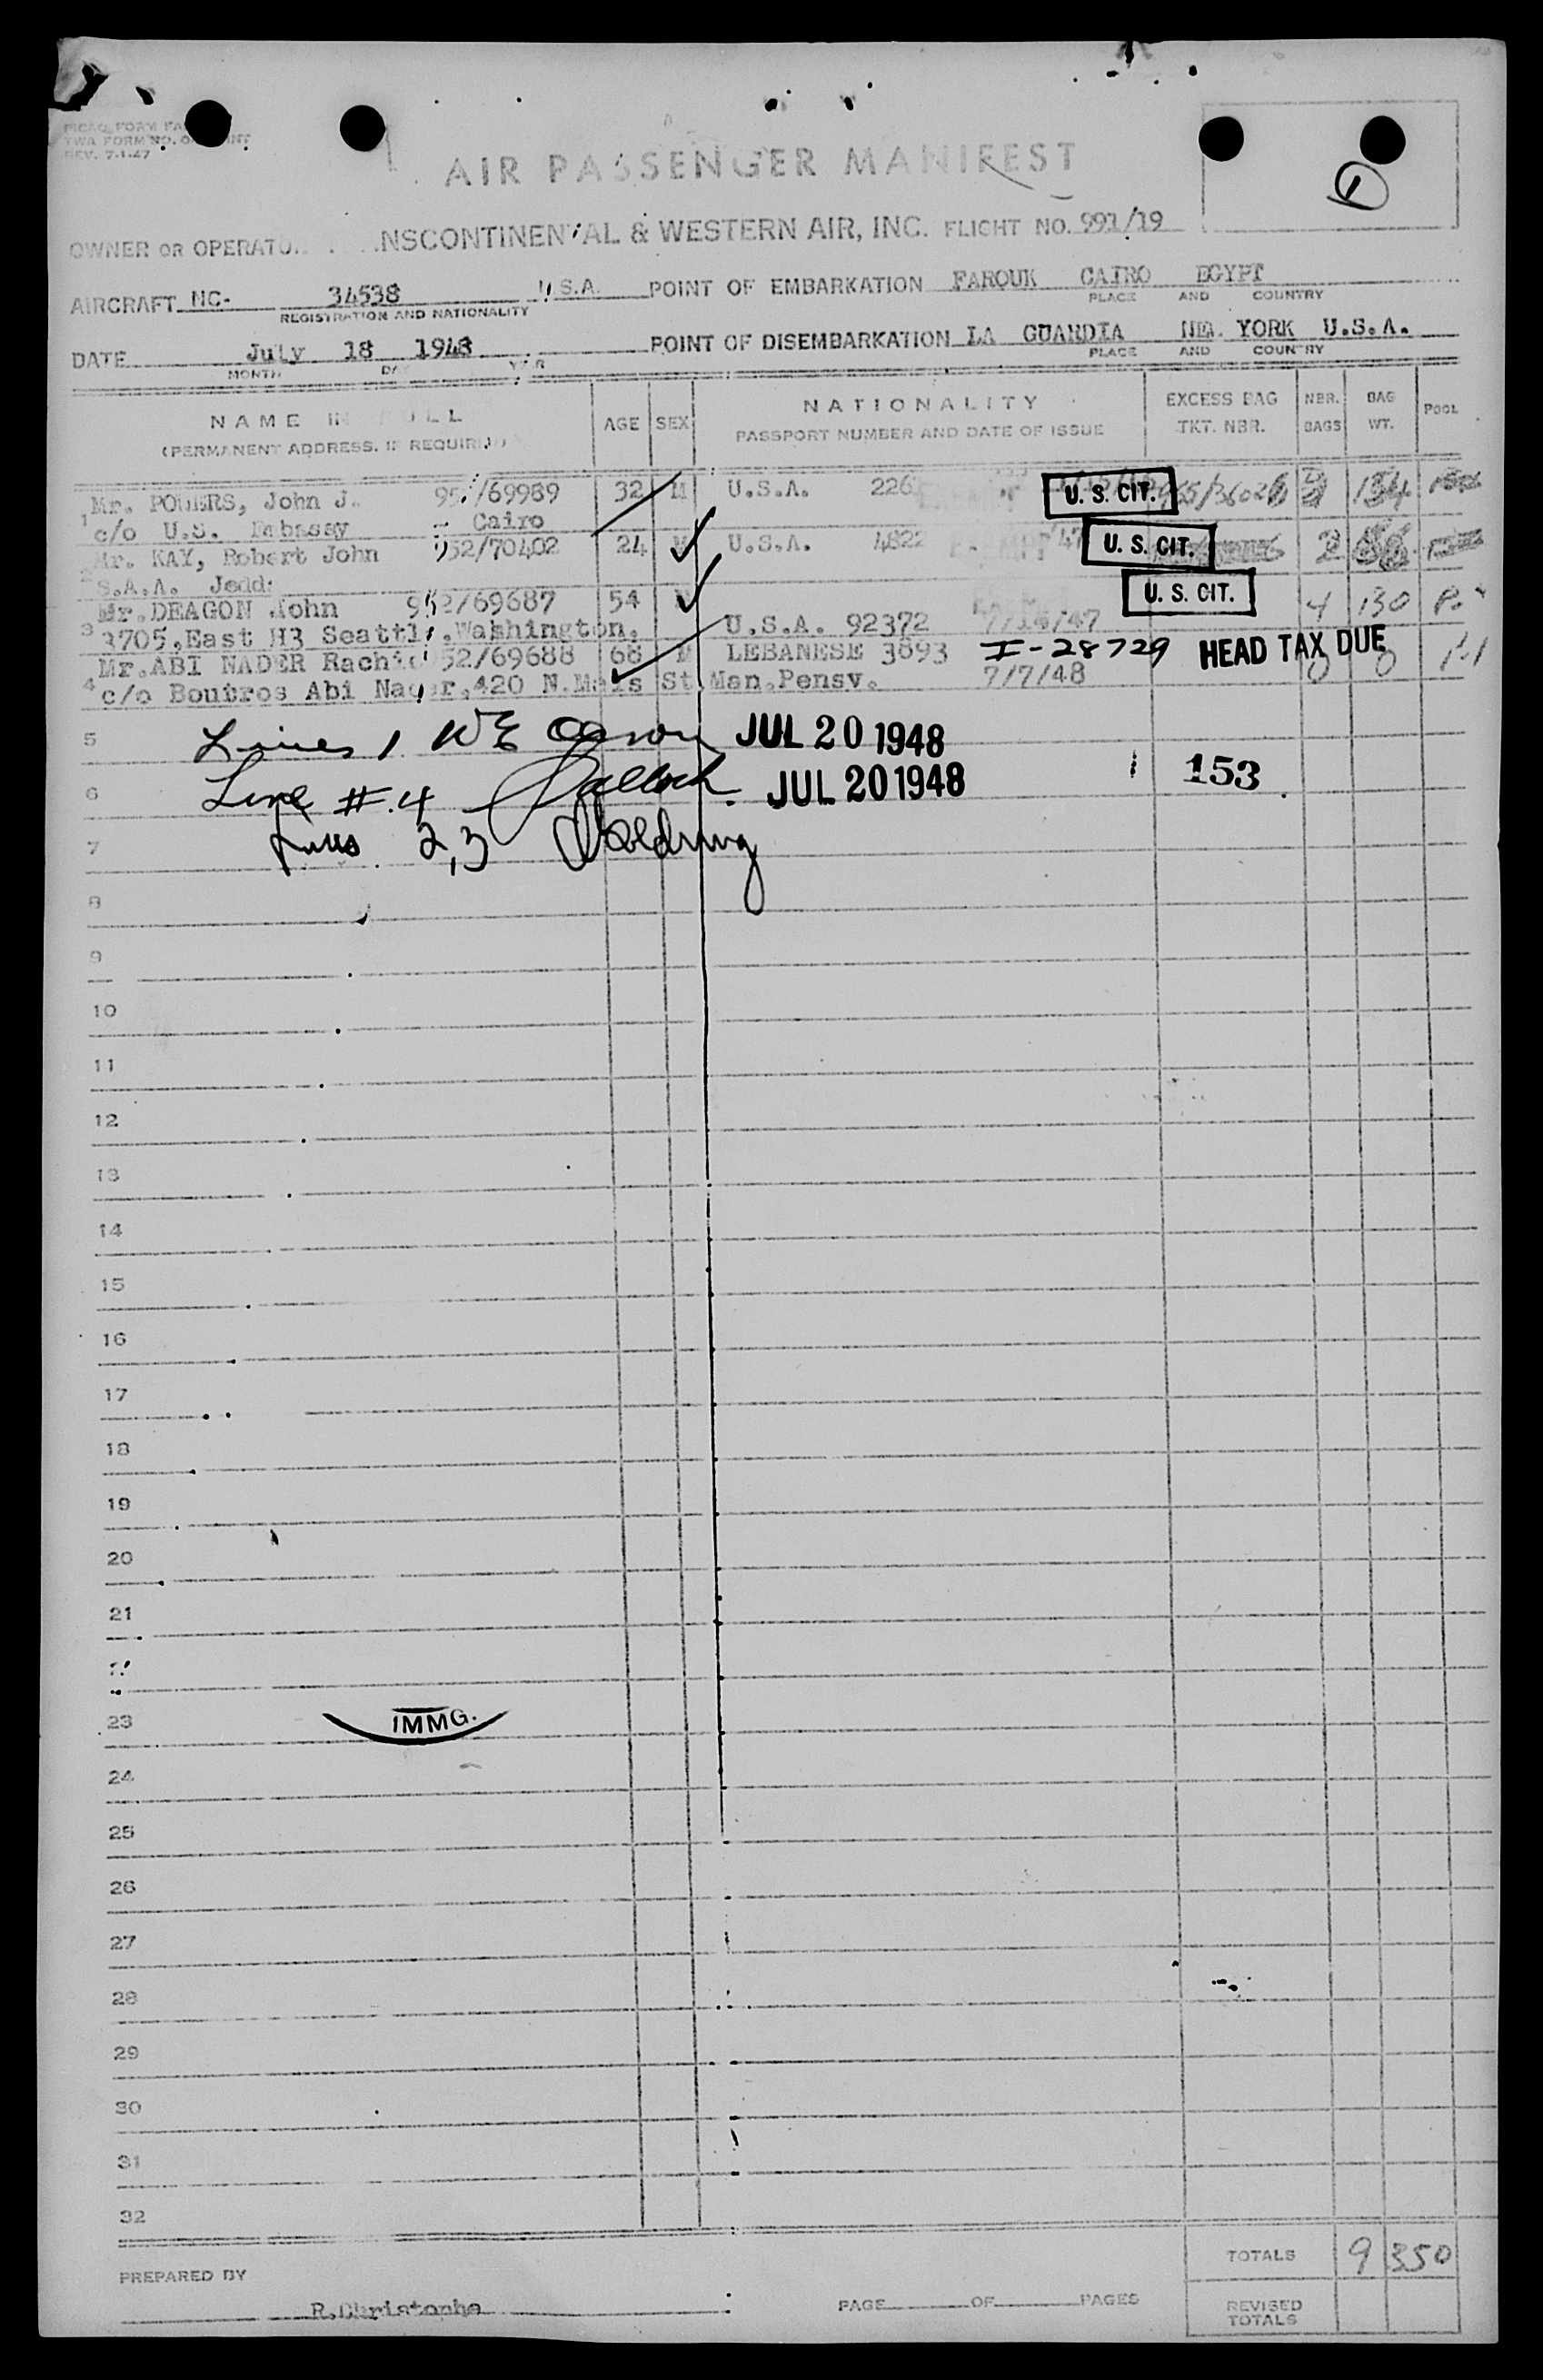 REV. 7-1-47
AIR PASSENGER MANIFEST
OWNER OR OPERATO NSCONTINENTAL & WESTERN AIR, INC. FLIGHT NO. 991/19
AIRCRAFT NC- 34538 U.S.A. POINT OF EMBARKATION FAROUK CAIRO EGYPT
REGISTRATION AND NATIONALITY PLACE AND COUNTRY
DATE July 18 1948 POINT OF DISEMBARKATION LA GUARDIA NEW YORK U.S.A.
MONTH DAY YEAR PLACE AND COUNTRY
NAME IN FULL AGE SEX NATIONALITY EXCESS BAG NBR. BAG POOL
(PERMANENT ADDRESS, IF REQUIRED) PASSPORT NUMBER AND DATE OF ISSUE TKT. NBR. BAGS WT.
Mr. POWERS, John J. /69989 32 M U.S.A. 226 U. S. CIT. 134
1 c/o U.S. Embassy Cairo
Mr. KAY, Robert John 952/70402 24 M U.S.A. 4822 EXEMPT 47 U. S. CIT. 2 86
2 S.A.A. Jedd
Mr. DEAGON John 952/69687 54 U. S. CIT. 4 130
3 3705, East H3 Seattle, Washington. U.S.A. 92372 7/14/47
Mr. ABI NADER Rachid 952/69688 68 M LEBANESE 3893 I-28729 HEAD TAX DUE 0 0
4 c/o Boutros Abi Nader, 420 N. Mais St Man. Pensv. 7/7/48
5 Lines 1 WE JUL 20 1948
6 Line #4 JUL 20 1948 153
7 Lines 2,3
8
9
10
11
12
13
14
15
16
17
18
19
20
21
23 IMMG.
24
25
26
27
28
29
30
31
32
TOTALS 9 350
PREPARED BY
R. Christophe PAGE OF PAGES REVISED
TOTALS